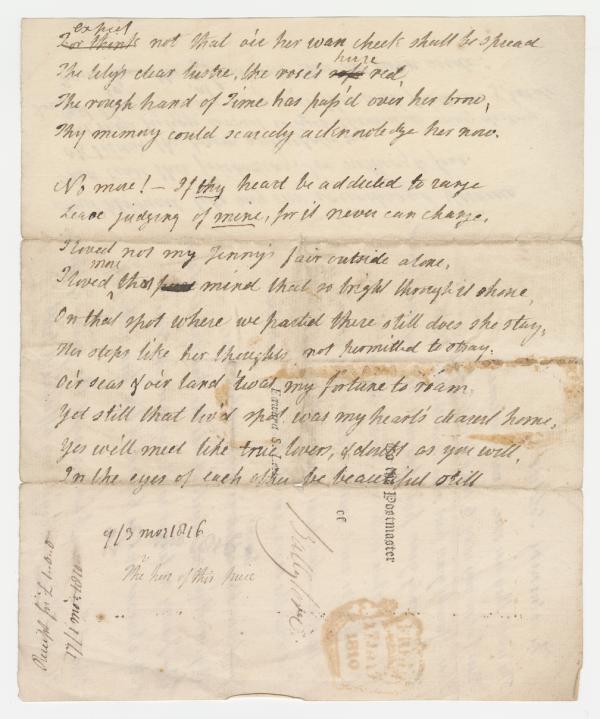 expect
For think not that o'er her wan cheek shall be spread
The lily's clear lustre, the rose's hure red,
The rough hand of Time has pass'd over her brow,
Thy memory could scarcely acknowledge her now.
No more! — If thy heart be addicted to range
Leave judging of mine, for it never can change.
I loved not my Jenny's fair outside alone,
more
I loved that mind that so bright through it shone,
On that spot where we parted there still does she stay,
Her steps like her thoughts not permitted to stray.
O'er seas & o'er land twas my fortune to roam
Yet still that lov'd spot was my heart's dearest home,
Yes we'll meet like true lovers, & doubt as you will,
In the eyes of each other be beautiful still
To the Postmaster
of
Ballytore
Edward S. Lees
9/3 mo 1816
The heir of this
Receipt for £
1810